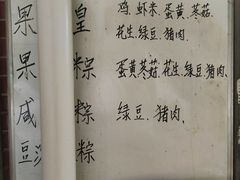 果皇 鸡.虾米.蛋黄.冬菇.
花生.绿豆.猪肉.
果粽 蛋黄.冬菇.花生.绿豆.猪肉.
咸粽 绿豆.猪肉.
豆粽